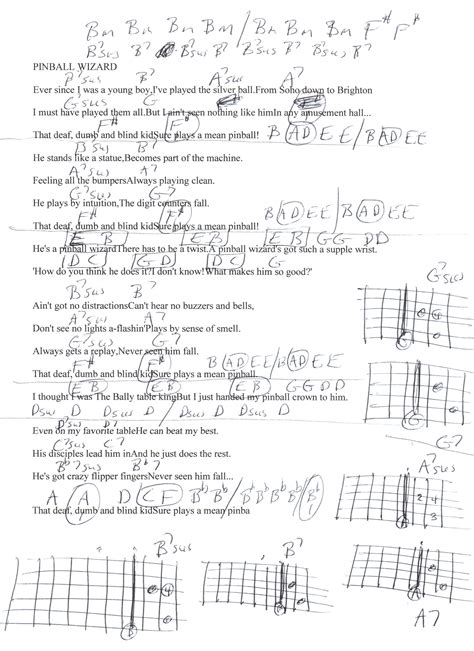 Bm Bm Bm Bm / Bm Bm Bm F# F#
B7sus B7 B7sus B7 B7sus B7 B7sus B7
PINBALL WIZARD
B7sus B7 A7sus A7
Ever since I was a young boy,I've played the silver ball.From Soho down to Brighton
G7sus G
I must have played them all.But I ain't seen nothing like himIn any amusement hall...
F# F#
That deaf, dumb and blind kidSure plays a mean pinball! B AD E E / B AD E E
B7sus B7
He stands like a statue,Becomes part of the machine.
A7sus A7
Feeling all the bumpersAlways playing clean.
G7sus G7
He plays by intuition,The digit counters fall.
F# F#
That deaf, dumb and blind kidSure plays a mean pinball! B AD E E / B AD E E
E B E B E B / G G D D
He's a pinball wizardThere has to be a twist.A pinball wizard's got such a supple wrist.
D C G D D C G
'How do you think he does it?I don't know!What makes him so good?'
G7sus
B7sus B7
Ain't got no distractionsCan't hear no buzzers and bells,
A7sus A7
Don't see no lights a-flashin'Plays by sense of smell.
G7sus G7
G
Always gets a replay,Never seen him fall.
F# F#
That deaf, dumb and blind kidSure plays a mean pinball. B AD E E / B AD E E
E B E B G G D D
I thought I was The Bally table kingBut I just handed my pinball crown to him.
G
Dsus D Dsus D Dsus D Dsus D
G7
D7sus D7
Even on my favorite tableHe can beat my best.
C7sus C7
His disciples lead him inAnd he just does the rest.
A7sus
Bb7sus Bb7
He's got crazy flipper fingersNever seen him fall...
2 4
3
A A D C F Bb Bb / Bb Bb Bb Bb / Bb
That deaf, dumb and blind kidSure plays a mean pinba
A
A7
B7sus B7
4
B B